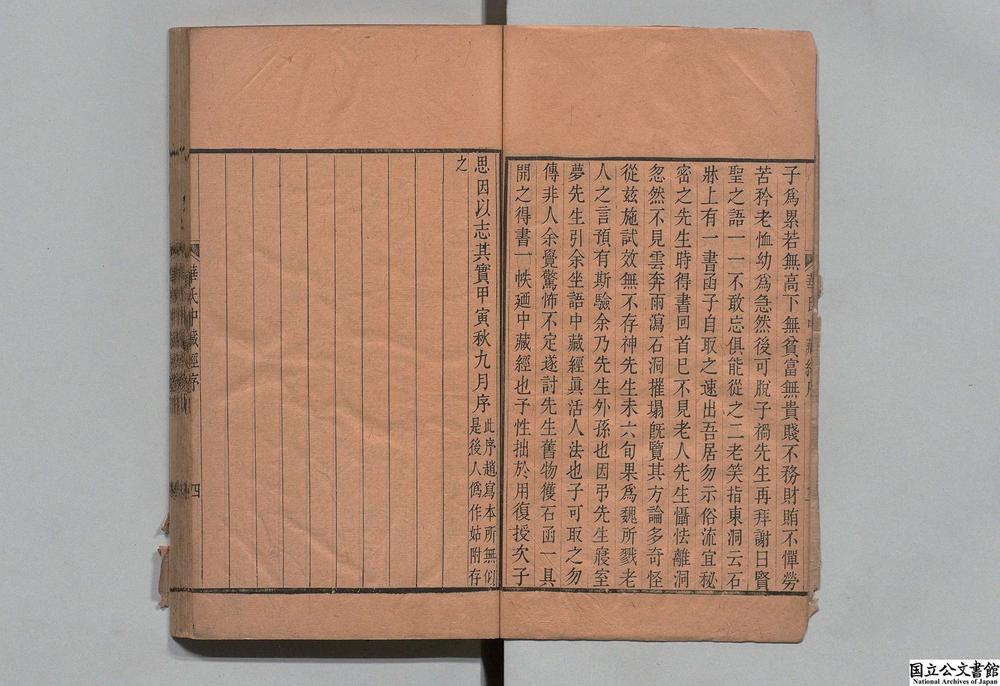 子爲累若無高下無貧富無貴賤不務財賄不憚勞
苦矜老恤幼爲急然後可脫子禍先生再拜謝曰賢
聖之語一一不敢忘俱能從之二老笑指東洞云石
牀上有一書函子自取之速出吾居勿示俗流宜秘
密之先生時得書回首已不見老人先生懾怯離洞
忽然不見雲奔雨瀉石洞摧塌旣覽其方論多奇怪
從兹施試效無不存神先生未六旬果爲魏所戮老
人之言預有斯驗余乃先生外孫也因弔先生寢室
夢先生引余坐語中藏經眞活人法也子可取之勿
傳非人余覺驚怖不定遂討先生舊物獲石函一具
開之得書一帙廼中藏經也予性拙於用復授次子
思因以志其實甲寅秋九月序此序趙寫本所無似是後人僞作姑附存
之
華氏中藏經序
四
国立公文書館
National Archives of Japan